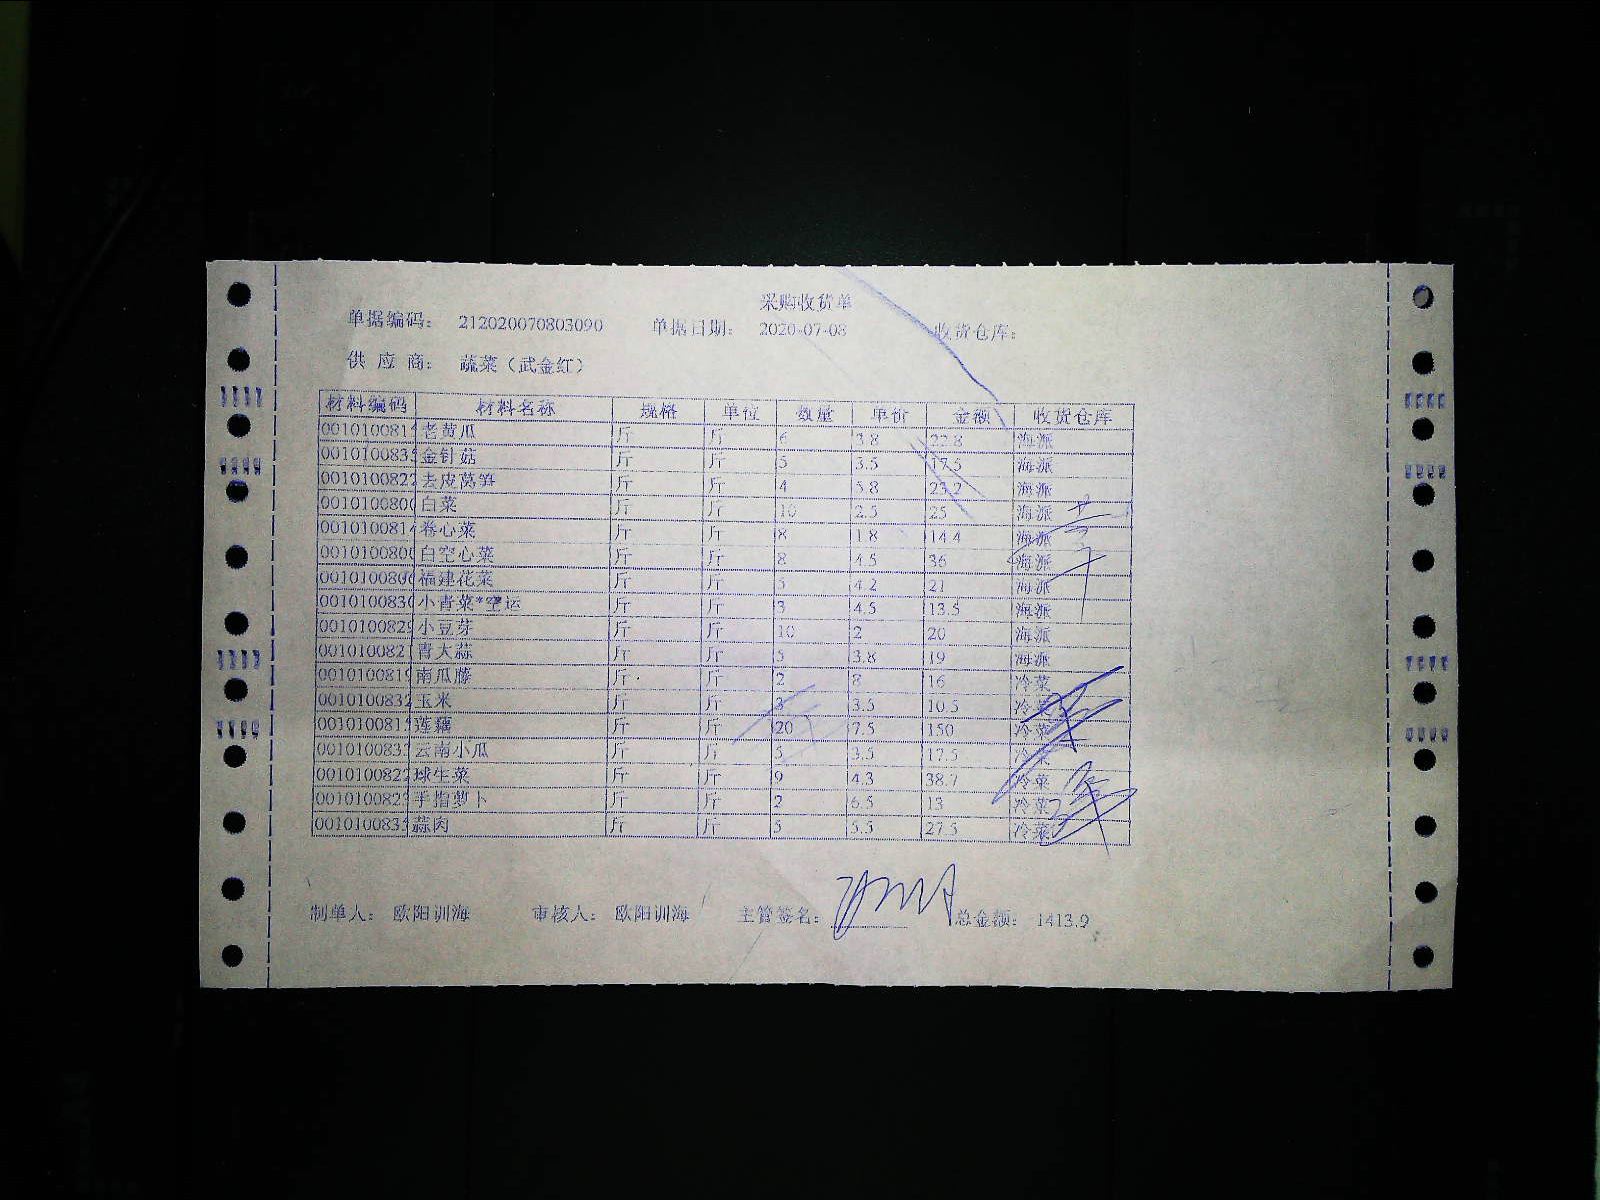 采购收货单
单据编码: 212020070803090 单据日期: 2020-07-08 收货仓库:
供应商: 蔬菜（武金红）
材料编码 材料名称 规格 单位 数量 单价 金额 收货仓库
001010081 老黄瓜 斤 斤 6 3.8 22.8 海派
001010083 金针菇 斤 斤 5 3.5 17.5 海派
001010082 去皮莴笋 斤 斤 4 5.8 23.2 海派
001010080 白菜 斤 斤 10 2.5 25 海派
001010081 卷心菜 斤 斤 8 1.8 14.4 海派
001010080 白空心菜 斤 斤 8 4.5 36 海派
001010080 福建花菜 斤 斤 5 4.2 21 海派
001010083 小青菜*空运 斤 斤 3 4.5 13.5 海派
001010082 小豆芽 斤 斤 10 2 20 海派
001010082 青大蒜 斤 斤 5 3.8 19 海派
001010081 南瓜藤 斤 斤 2 8 16 冷菜
001010083 玉米 斤 斤 3 3.5 10.5 冷菜
001010081 莲藕 斤 斤 20 7.5 150 冷菜
001010083 云南小瓜 斤 斤 5 3.5 17.5 冷菜
001010082 球生菜 斤 斤 9 4.3 38.7 冷菜
001010082 手指萝卜 斤 斤 2 6.5 13 冷菜
001010083 蒜肉 斤 斤 5 5.5 27.5 冷菜
制单人: 欧阳训海 审核人: 欧阳训海 主管签名: 总金额: 1413.9